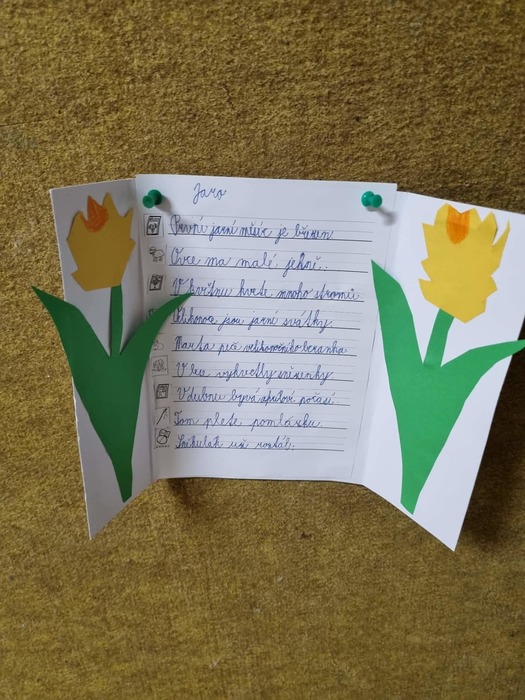 Jaro
První jarní měsíc je březen
Ovce má malé jehně.
V květnu kvete mnoho stromů.
Velikonoce jsou jarní svátky.
Marta peče velikonočního beránka
V lese vykvetly sněženky
V dubnu bývá aprílové počasí.
Tom plete pomlázku.
Sněhulák už roztál.